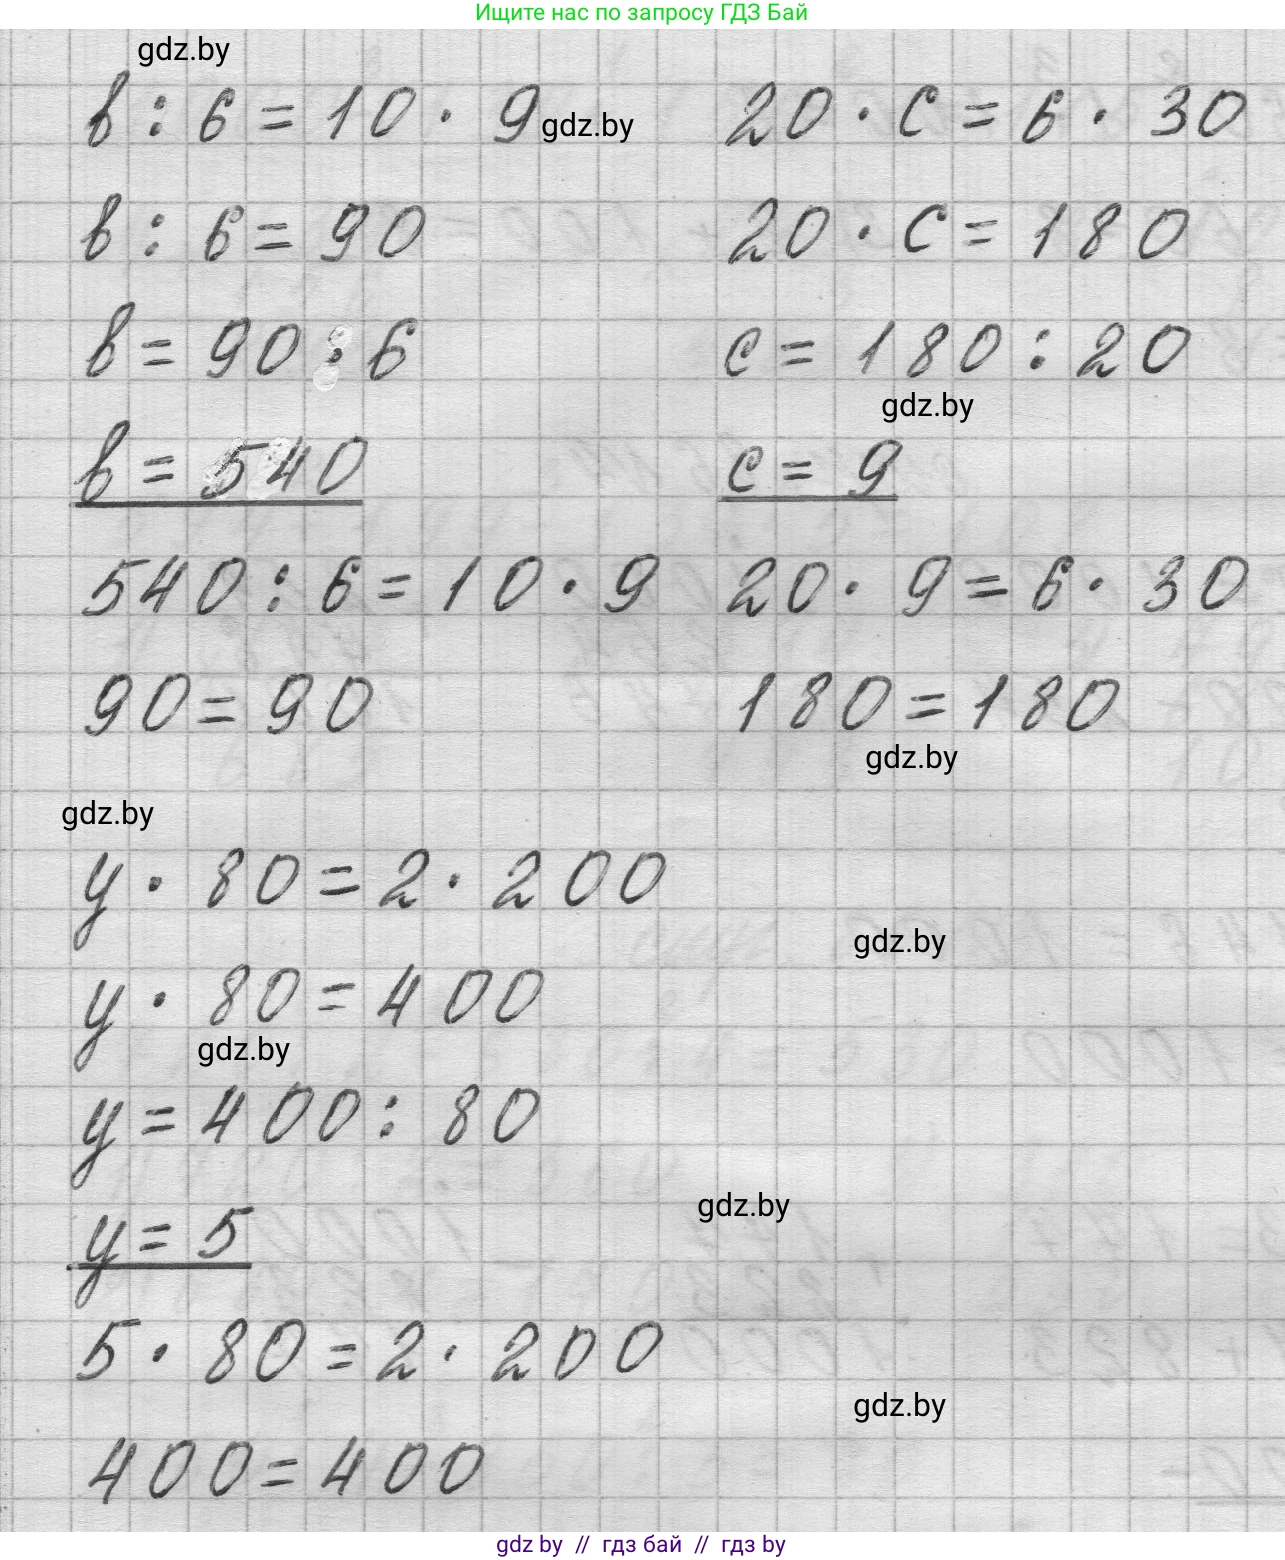 Ищите нас по запросу ГДЗ Бай
gdz.by
в : 6 = 10 · 9
gdz.by
в : 6 = 90
в = 90 · 6
в = 540
540 : 6 = 10 · 9
90 = 90
20 · с = 6 · 30
20 · с = 180
с = 180 : 20
gdz.by
с = 9
20 · 9 = 6 · 30
180 = 180
gdz.by
gdz.by
у · 80 = 2 · 200
gdz.by
у · 80 = 400
gdz.by
у = 400 : 80
gdz.by
у = 5
5 · 80 = 2 · 200
gdz.by
400 = 400
gdz by // гдз бай // гдз by